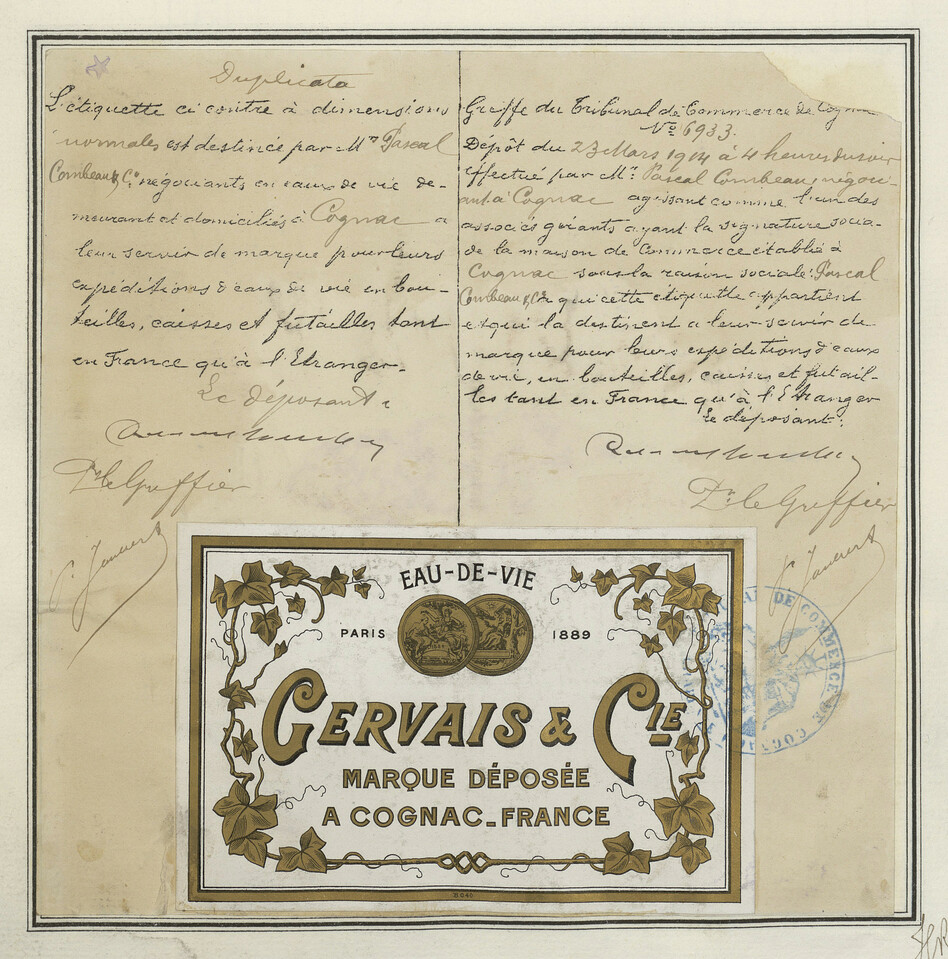 Duplicata
L'étiquette ci contre à dimensions
normales est destinée par Mrs Pascal
Combeau & Cie négociants en eaux de vie de-
meurant et domiciliés à Cognac a
leur servir de marque pour leurs
expéditions d'eaux de vie en bou-
teilles, caisses et futailles tant
en France qu'à l'Etranger.
Le déposant
Pr le Greffier
Greffe du Tribunal de Commerce de Cognac
No 6933.
Dépôt du 23 Mars 1904 à 4 heures du soir
effectué par Mr Pascal Combeau, négoci-
ant à Cognac agissant comme l'un des
associés gérants ayant la signature socia-
de la maison de Commerce établie à
Cognac sous la raison sociale: Pascal
Combeau & Cie à qui cette étiquette appartient
et qui la destinent a leur servir de
marque pour leurs expéditions d'eaux
de vie, en bouteilles, caisses et futail-
les tant en France qu'à l'Etranger
Le déposant:
Pr le Greffier
EAU-DE-VIE
PARIS 1889
GERVAIS & CIE
MARQUE DÉPOSÉE
A COGNAC-FRANCE
DE COMMERCE DE COGNAC